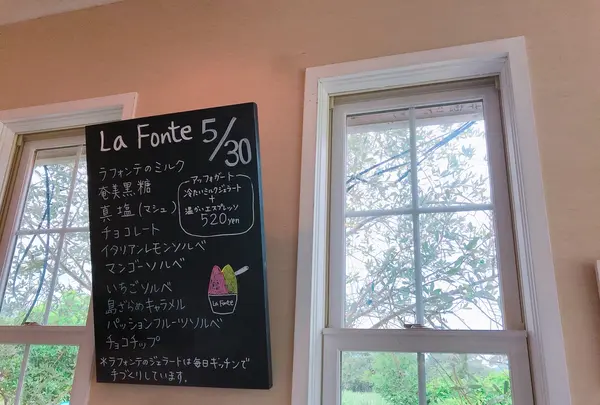 La Fonte 5/30
ラフォンテのミルク
奄美黒糖
真塩(マシュ)
チョコレート
イタリアンレモンソルベ
マンゴーソルベ
いちごソルベ
島ざらめキャラメル
パッションフルーツソルベ
チョコチップ
アッフォガート
冷たいミルクジェラート
+
温かいエスプレッソ
520yen
La Fonte
*ラフォンテのジェラートは毎日キッチンで
手づくりしています。